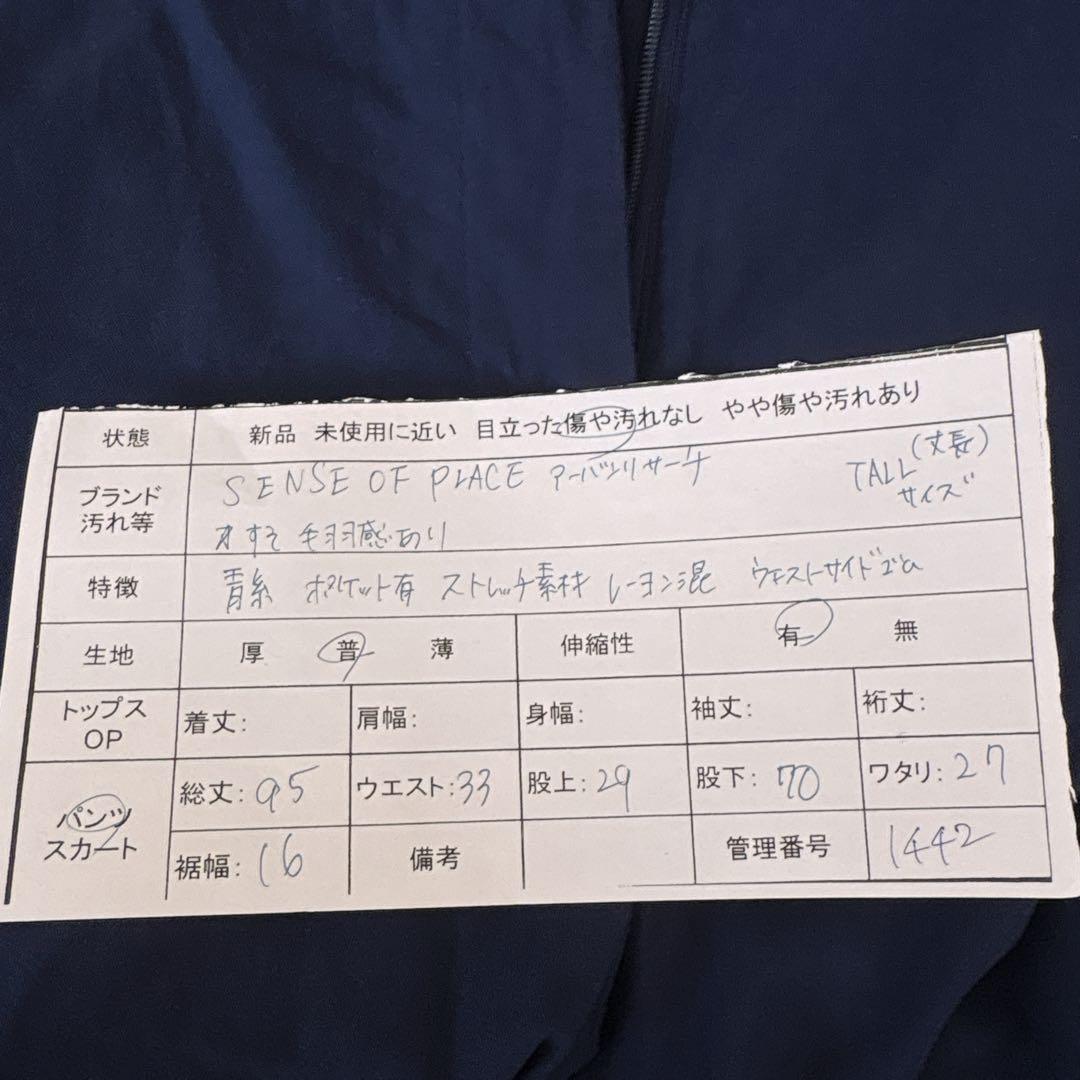 状態 新品 未使用に近い 目立った傷や汚れなし やや傷や汚れあり
ブランド 汚れ等 SENSE OF PLACE アーバンリサーチ TALL サイズ (丈長)
すそ 毛羽感あり
特徴 青系 ポケット有 ストレッチ素材 レーヨン混 ウエストサイドゴム
生地 厚 普 薄 伸縮性 有 無
トップス OP 着丈: 肩幅: 身幅: 袖丈: 裄丈:
パンツ スカート 総丈: 95 ウエスト: 33 股上: 29 股下: 70 ワタリ: 27
裾幅: 16 備考 管理番号 1442